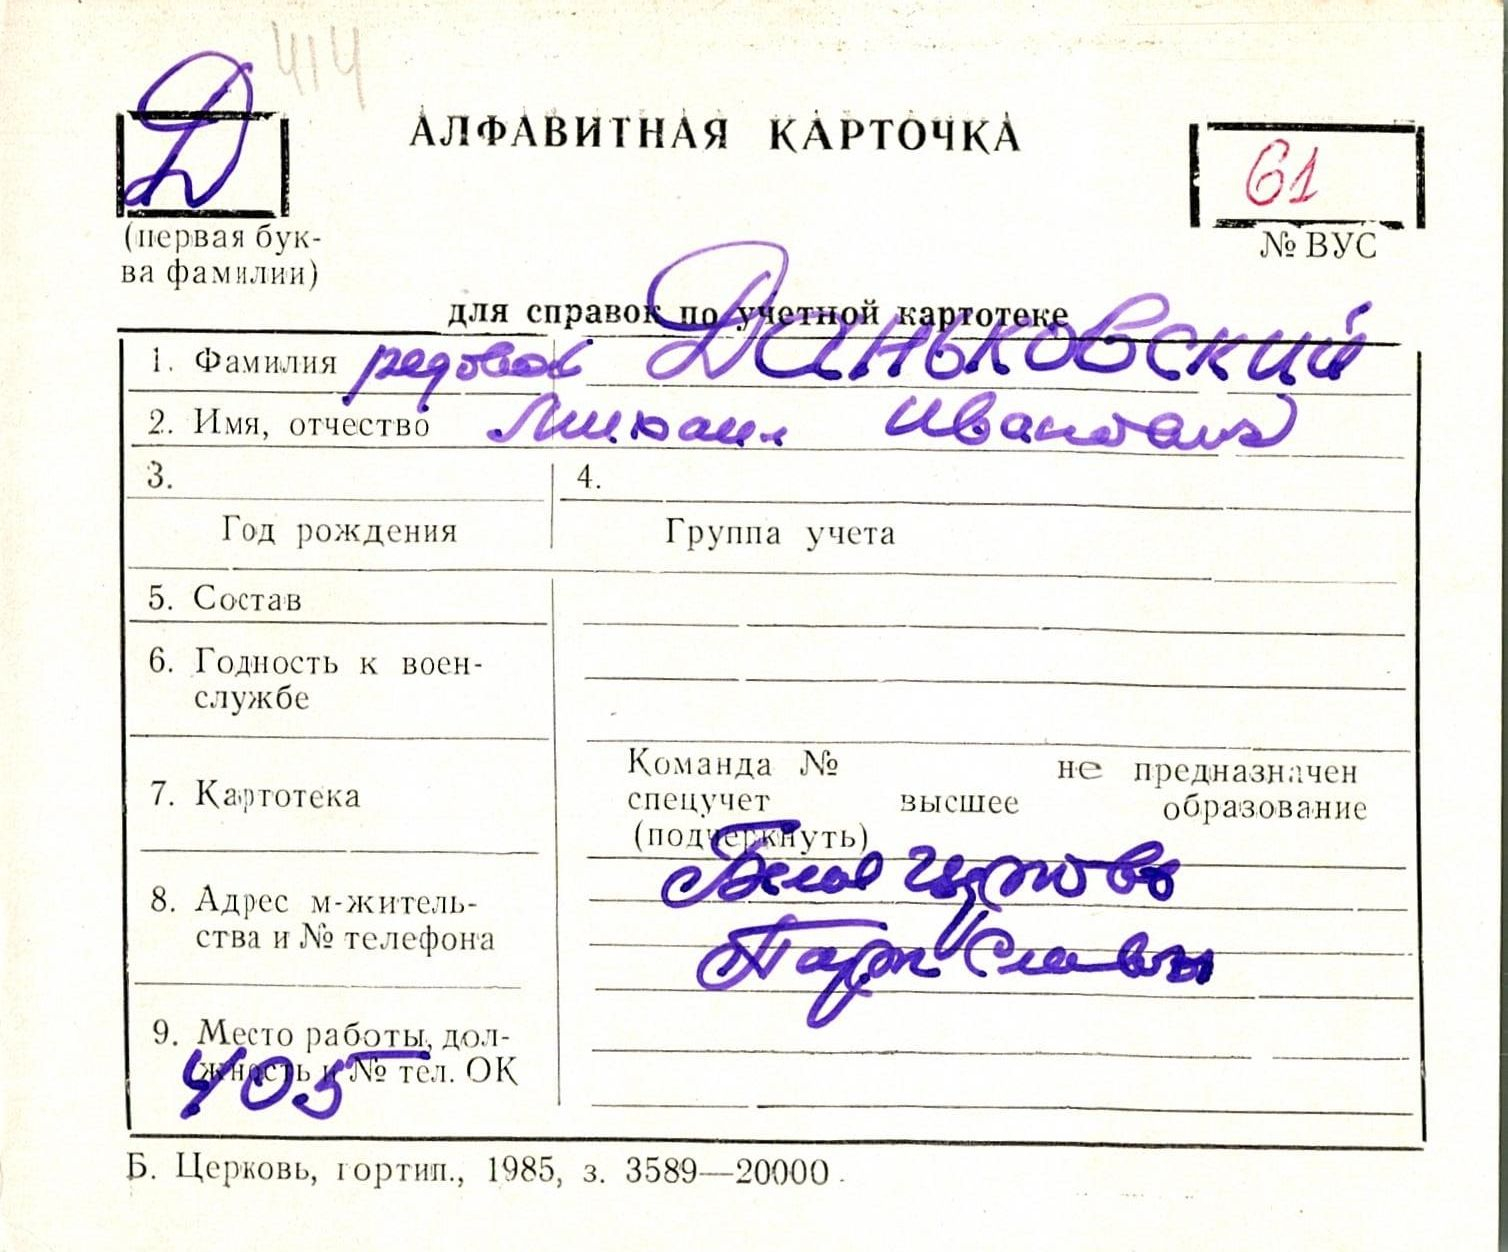 414
Д
АЛФАВИТНАЯ КАРТОЧКА
61
(первая бук-
ва фамилии)
№ ВУС
для справок по учетной картотеке
1. Фамилия рядовой Даньковский
2. Имя, отчество Михаил Иванович
3.
4.
Год рождения
Группа учета
5. Состав
6. Годность к воен-
службе
7. Картотека
Команда № не предназначен
спецучет высшее образование
(подчеркнуть)
8. Адрес м-житель-
ства и № телефона
Белая Церковь
Парк Славы
9. Место работы, дол-
жность и № тел. ОК
405
Б. Церковь, гортип., 1985, з. 3589—20000.